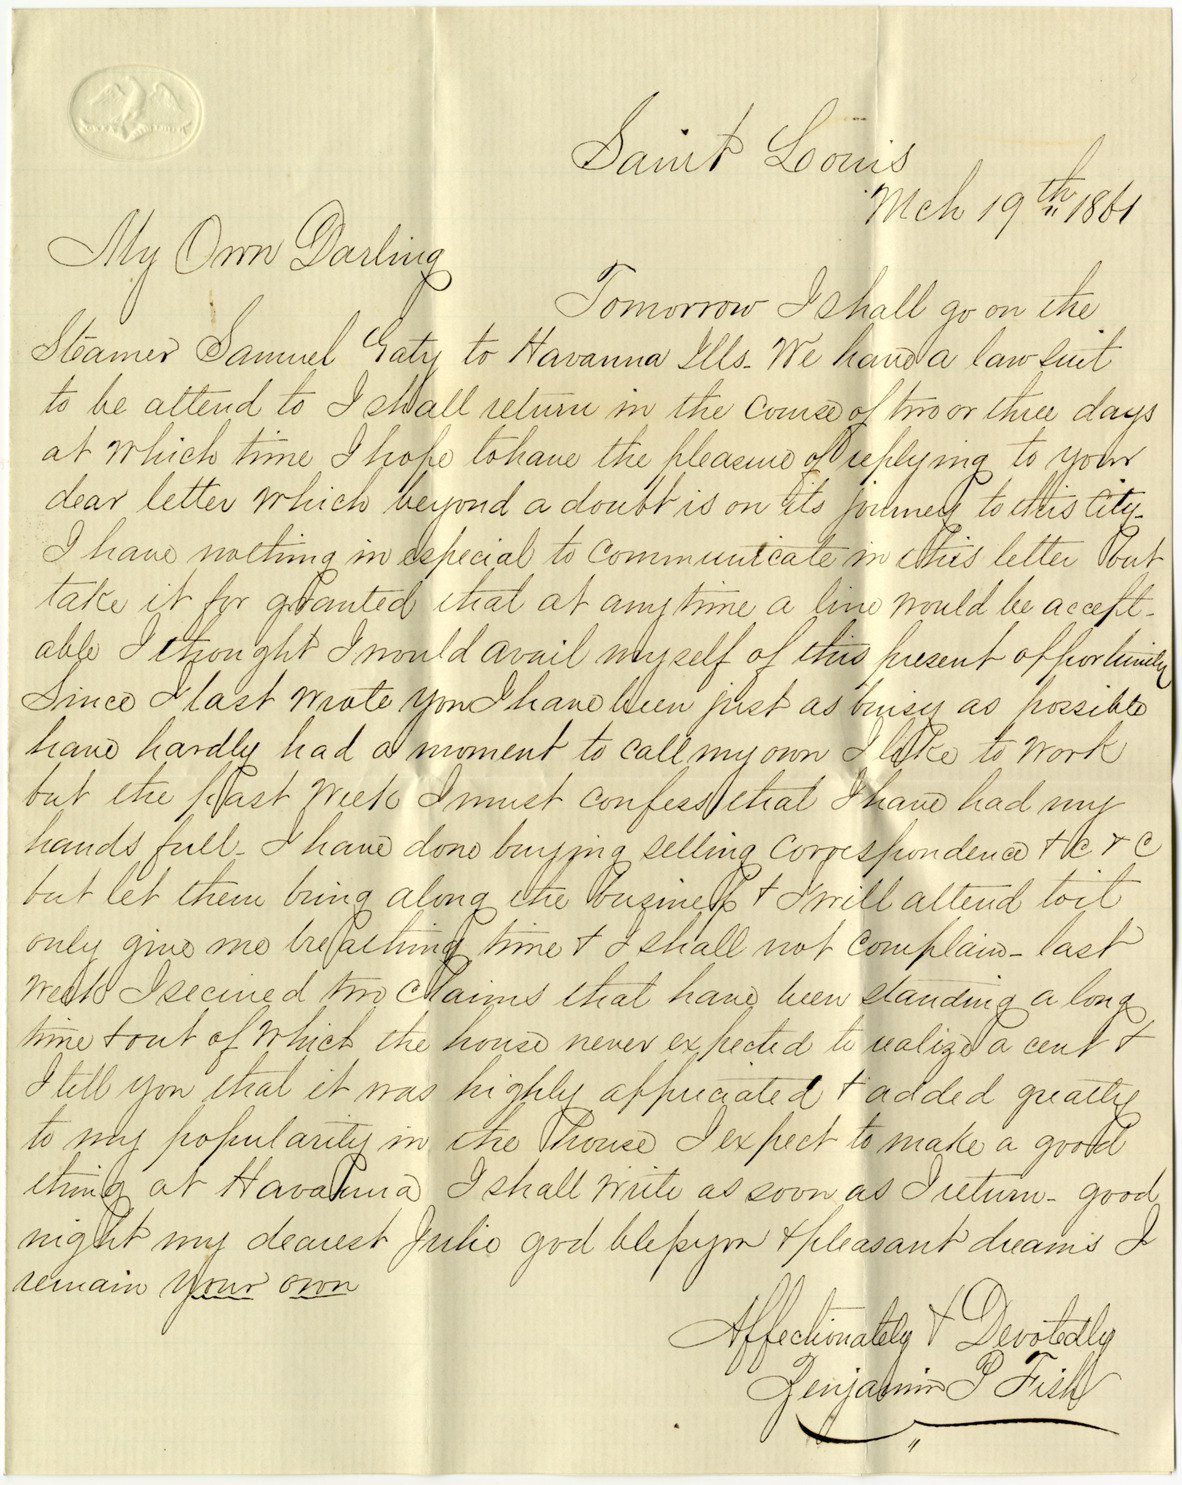 Saint Louis
Mch 19th 1861
My Own Darling
Tomorrow I shall go on the
Steamer Samuel Gaty to Havanna Ills. We have a law suit
to be attend to I shall return in the course of two or three days
at which time I hope to have the pleasure of replying to your
dear letter which beyond a doubt is on its journey to this City-
I have nothing in especial to communicate in this letter but
take it for granted that at any time a line would be accept-
able I thought I would avail myself of this present opportunity
Since I last wrote you I have been just as buisy as possible
have hardly had a moment to call my own I like to work
but the past week I must confess that I have had my
hands full- I have done buying selling correspondence & c & c
but let them bring along the business & I will attend to it
only give me breathing time & I shall not complain- last
week I secured two claims that have been standing a long
time & out of which the house never expected to realize a cent &
I tell you that it was highly appreciated & added greatly
to my popularity in the house I expect to make a good
thing at Havanna I shall write as soon as I return- good
night my dearest Julie god bless you & pleasant dreams I
remain your own
Affectionately & Devotedly
Benjamin P Fish